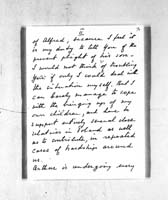 of Alfred, because I feel it
is my duty to tell you of the
present plight of his son.
I would not think of troubling
you if only I would deal with
the situation myself. But I
can barely manage to cope
with the bringing up of my
own children, and try to
support actively several close
relatives in Poland as well
as to contribute, in repeated
cases of hardships around
us.
Arthur is undergoing very